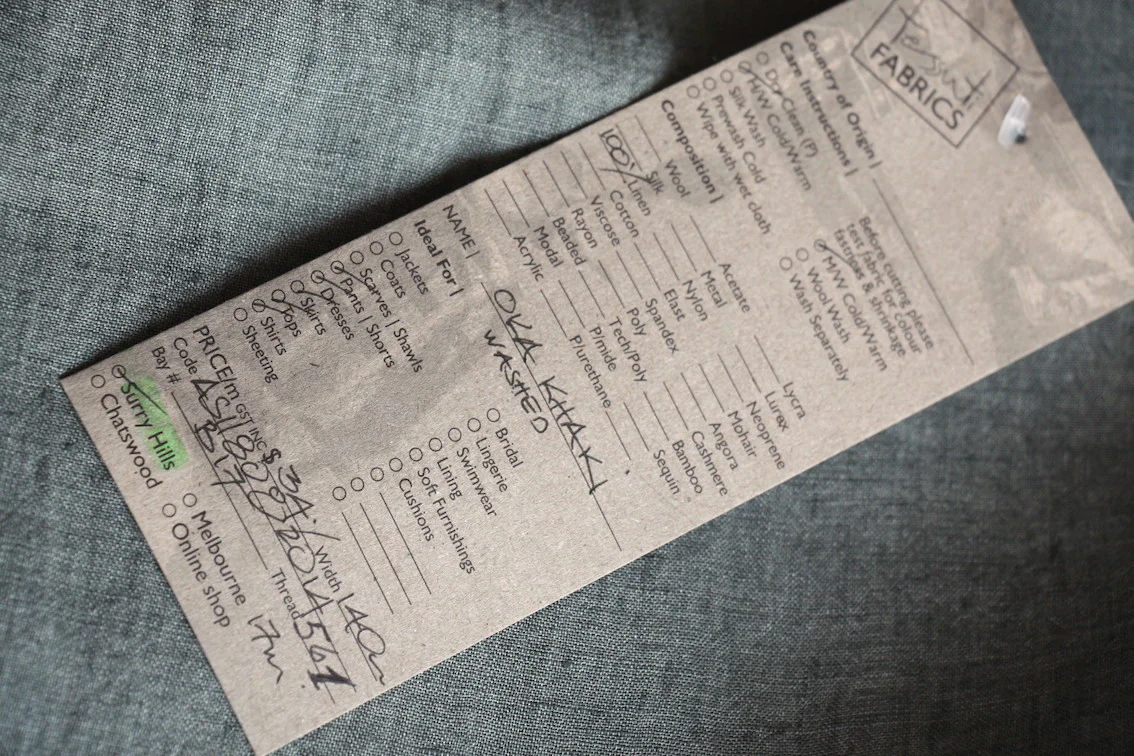 Tessuti
FABRICS
Country of Origin |
Care Instructions |
Dry-Clean (P)
M/W Cold/Warm
Silk Wash
Prewash Cold
Wipe with wet cloth
Before cutting please
test fabric for colour
fastness & shrinkage
M/W Cold/Warm
Wool Wash
Wash Separately
Composition |
Silk Acetate Lycra
Wool Metal Lurex
100% Linen Nylon Neoprene
Cotton Elast Mohair
Viscose Spandex Angora
Rayon Poly Cashmere
Beaded Tech/Poly Bamboo
Modal P/mide Sequin
Acrylic P/urethane
NAME | OKA KHAKI
WASHED
Ideal For |
Jackets
Coats
Scarves | Shawls
Pants | Shorts
Dresses
Skirts
Tops
Shirts
Sheeting
Bridal
Lingerie
Swimwear
Lining
Soft Furnishings
Cushions
PRICE/m GST INC $34.- Width 140
Code
Bay # B17 Thread
Surry Hills
Chatswood
Melbourne 17m
Online shop